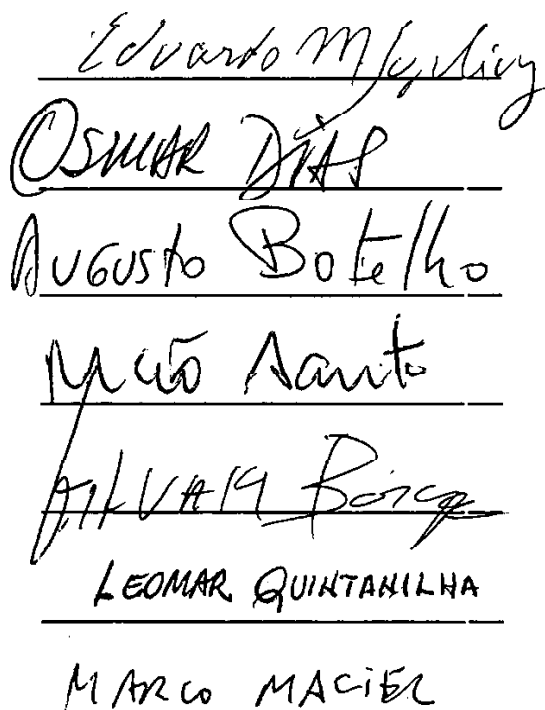 Eduardo M Suplicy
OSMAR DIAS
AUGUSTO Botelho
Mão Santa
GILVAM Borges
LEOMAR QUINTANILHA
MARCO MACIEL